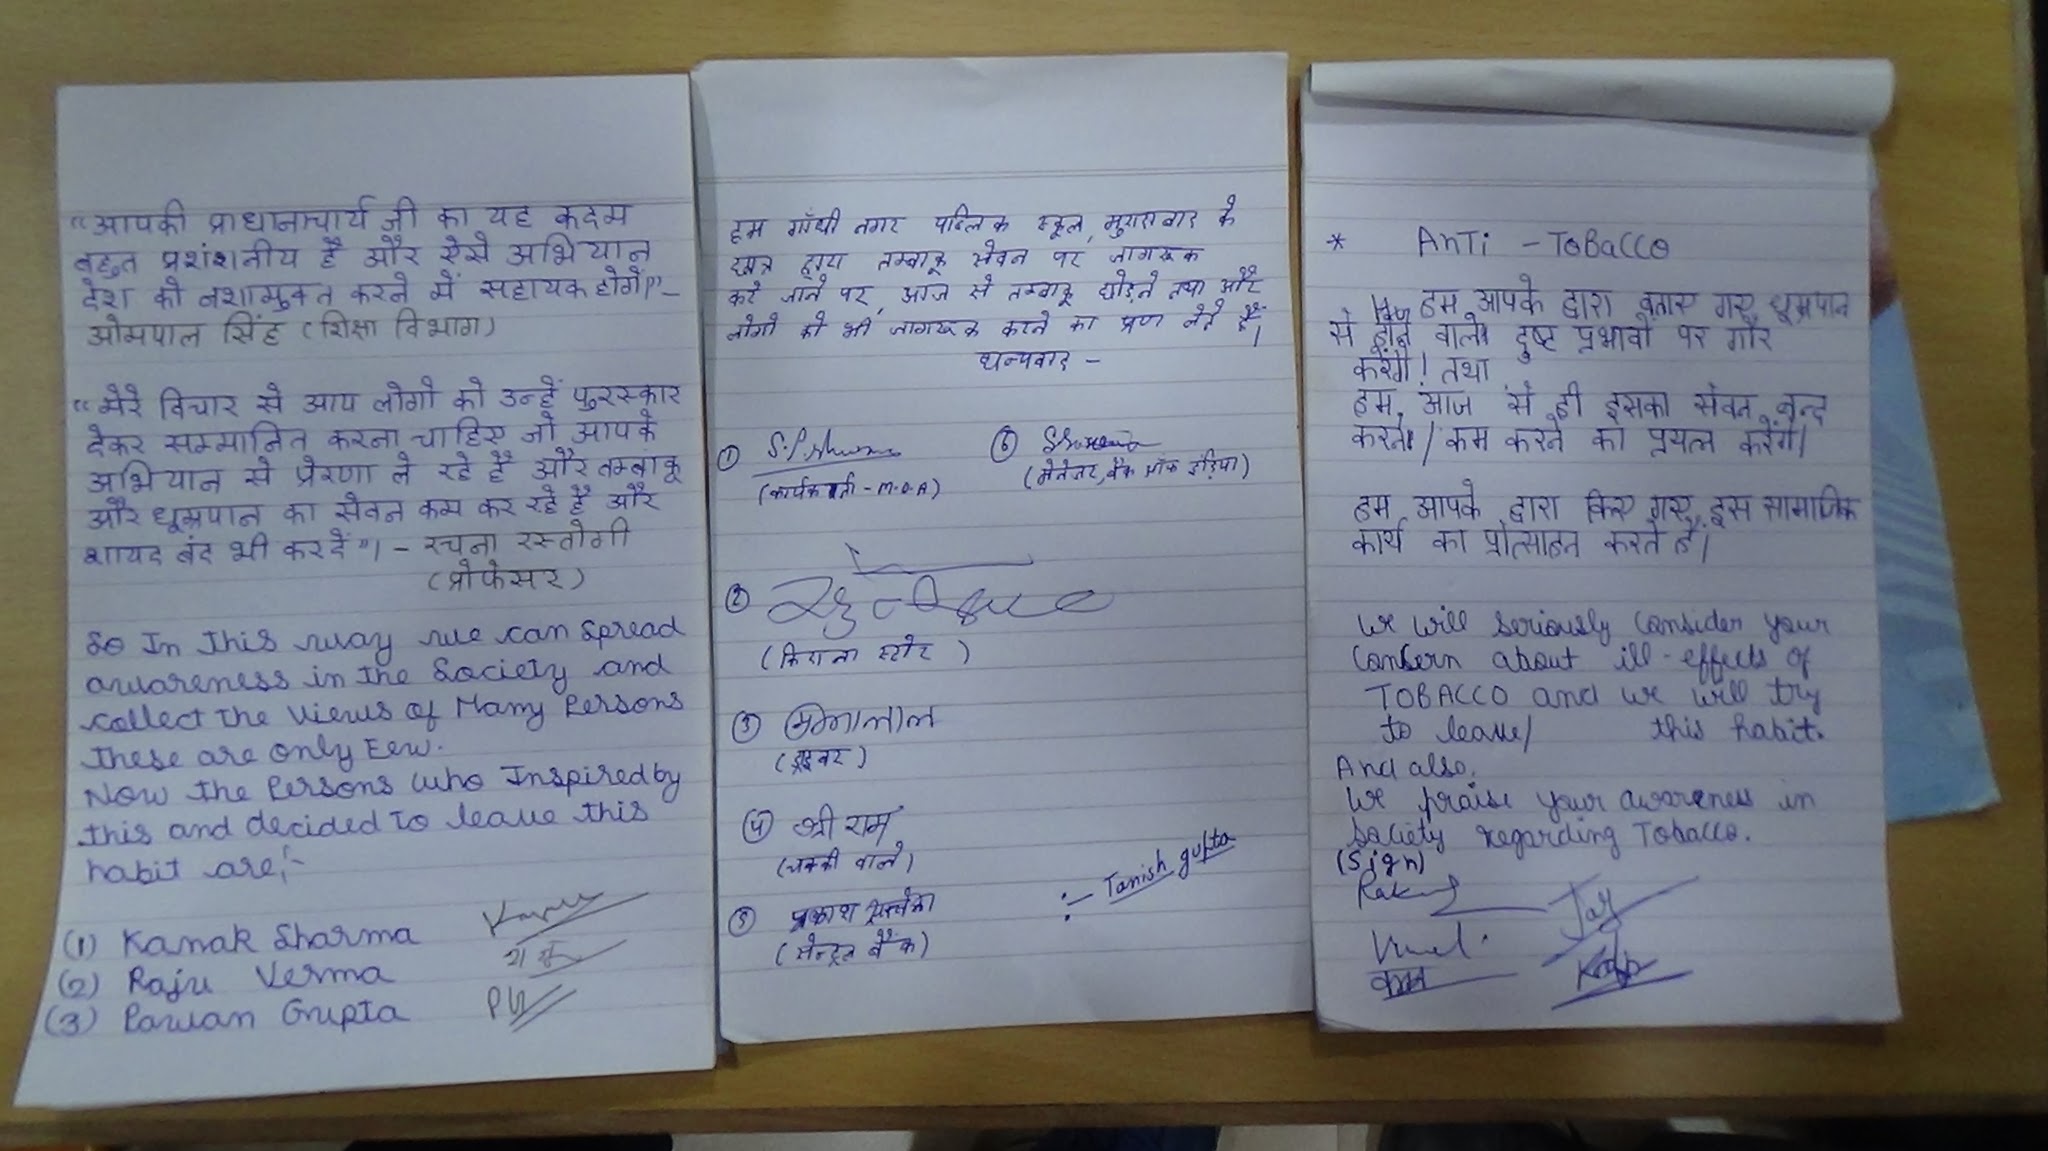 “आपकी प्राधानाचार्य जी का यह कदम
बहुत प्रशंशनीय है और ऐसे अभियान
देश को नशामुक्त करने में सहायक होगें।”–
ओमपाल सिंह (शिक्षा विभाग)
“मेरे विचार से आप लोगो को उन्हें पुरस्कार
देकर सम्मानित करना चाहिए जो आपके
अभियान से प्रेरणा ले रहे है और तम्बाकू
और धूम्रपान का सेवन कम कर रहे है और
शायद बंद भी कर दें”। – रचना रस्तोगी
(प्रोफेसर)
So In this way we can spread
awareness in the Society and
collect the views of Many Persons
These are only Few.
Now the Persons who Inspired by
this and decided to leave this
habit are:-
(1) Kanak Sharma
(2) Raju Verma
(3) Pawan Gupta
हम गाँधी नगर पब्लिक स्कूल, मुरादाबाद के
छात्र द्वारा तम्बाकू सेवन पर जागरूक
करे जाने पर, आज से तम्बाकू छोड़ने तथा और
लोगो को भी जागरूक करने का प्रण लेते हैं।
धन्यवाद –
①
(कार्यकर्ता – M.D.A)
⑥
(मेनेजर, बैंक ऑफ इंडिया)
②
(किराना स्टोर)
③
(ड्राइवर)
④ श्री राम
(चक्की वाले)
⑤ प्रकाश
(सेन्ट्रल बैंक)
:– Tanish gupta
* AnTi – ToBaCCO
हम आपके द्वारा बताए गए धूम्रपान
से होने वाले दुष्ट प्रभावों पर गौर
करेंगे! तथा
हम, आज से ही इसका सेवन बन्द
करने / कम करने का प्रयत्न करेंगे।
हम आपके द्वारा किए गए इस सामाजिक
कार्य का प्रोत्साहन करते है।
We will seriously consider your
Concern about ill-effects of
TOBACCO and we will try
to leave/ this habit.
And also,
We praise your awareness in
Society regarding Tobacco.
(Sign)